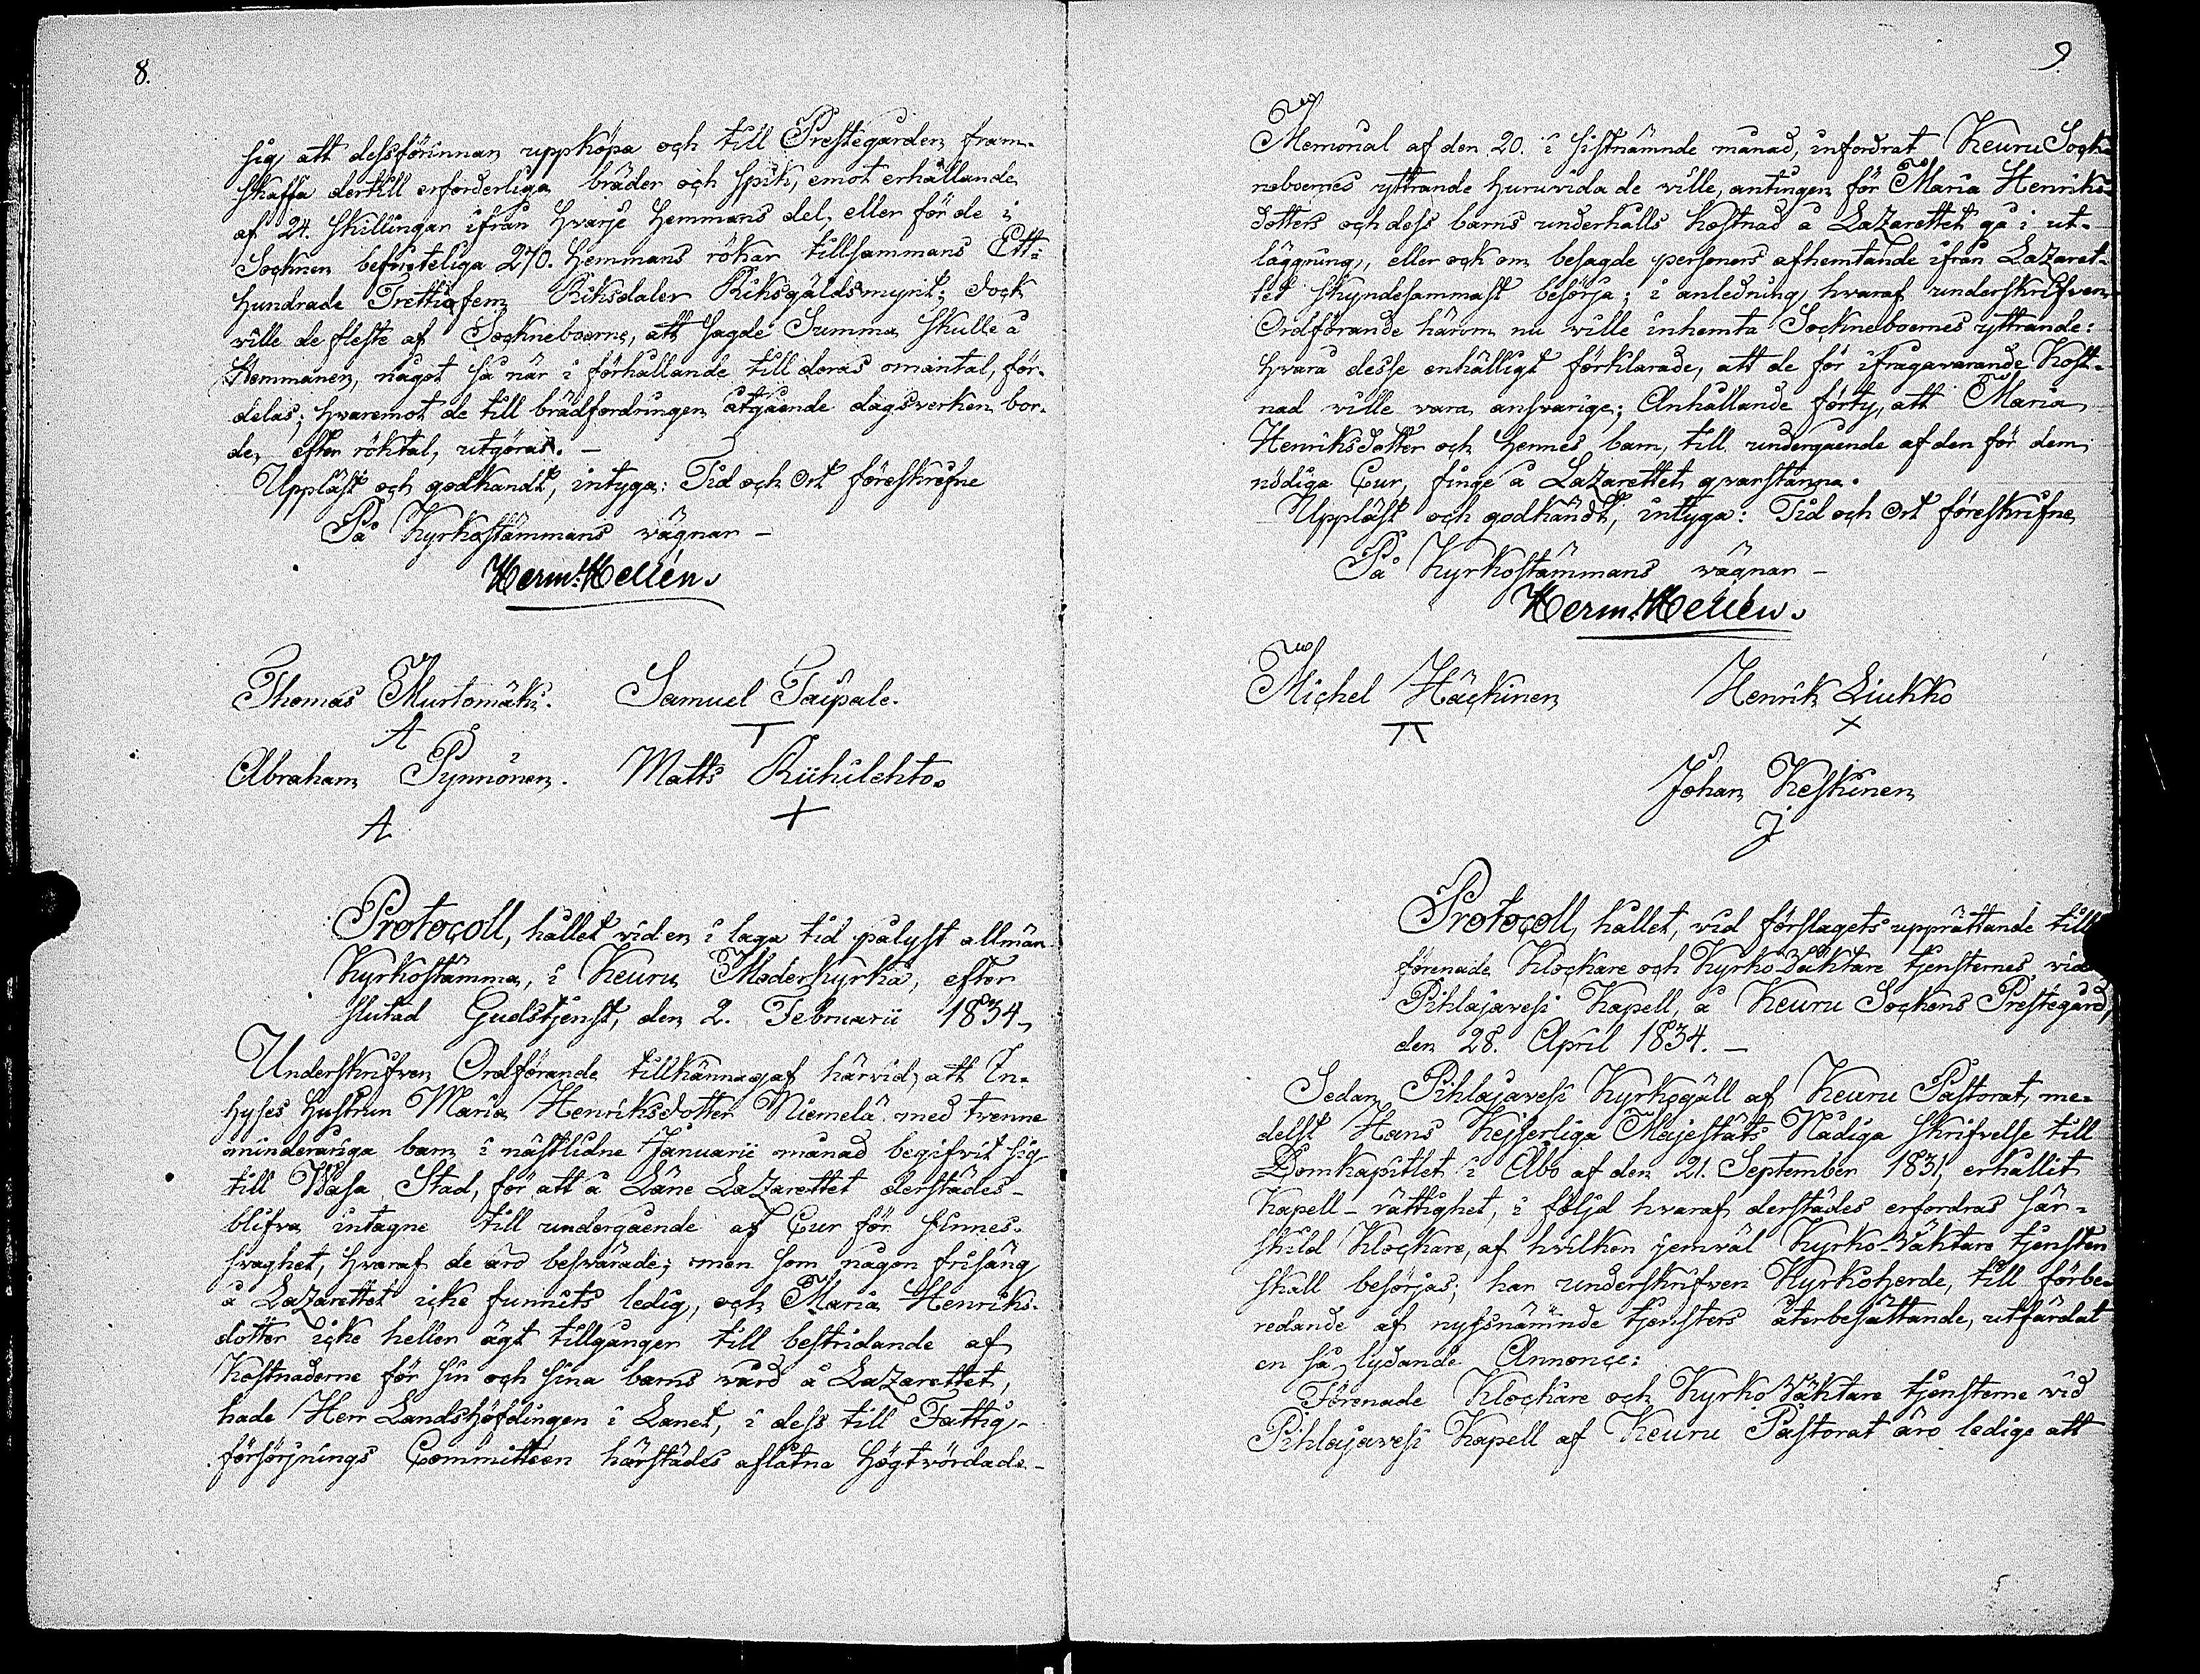 8.
sig att dessförinnan uppköpa och till Prestegården fram-
skaffa dertill erforderliga bräder och spik, emot erhållande
af 24. skillingar ifrån hvarje Hemmans del, eller för de i
Socknen befinteliga 270. Hemmans rökar tillsammans Ett-
hundrade Trettiofem Riksdaler Riksgäldsmynt; dock
ville de fleste af Sockneboerne, att sagde Summa skulle å
Hemmanen, något så när i förhållande till deras omäntal, för-
delas; hvaremot de till brädfordringen åtgående dagsverken bor-
de, efter röktal, utgöras. —
Uppläst och godkändt, intyga: Tid och Ort föreskrefne
På Kyrkostämmans vägnar —
Herm: Hellén.
Thomas Murtomäki. Samuel Taipale.
A T
Abraham Pynnönen. Matts Riihilehto.
A +
Protocoll, hållet vid en i laga tid pålyst allmän
Kyrkostämma, i Keuru Moderkyrka, efter
slutad Gudstjenst, den 2. Februarii 1834.
Underskrifven Ordförande tillkännagaf härvid, att In-
hyses Hustrun Maria Henriksdotter Niemelä med tvenne
minderåriga barn i nästlidne Januarii månad begifvit sig
till Wasa Stad, för att å Läne Lazarettet derstädes
blifva intagne till undergående af Cur för sinnes-
svaghet, hvaraf de äro besvärade; men som någon frisäng
å Lazarettet icke funnits ledig, och Maria Henriks-
dotter icke heller ägt tillgångar till bestridande af
Kostnaderne för sin och sina barns vård å Lazarettet,
hade Herr Landshöfdingen i Länet, i dess till Fattig-
försörjnings Committéen härstädes aflåtna Högtvördade
9.
Memorial af den 20. i sistnämnde månad, infordrat Keuru Sock-
neboernes yttrande huruvida de ville, antingen för Maria Henriks-
dotters och dess barns underhålls kostnad å Lazarettet gå i ut-
läggning, eller ock om besagde personers afhemtande ifrån Lazaret-
tet skyndesammast besörja; i anledning hvaraf underskrifven
Ordförande härom nu ville inhemta Socknebornes yttrande:
hvara desse enhälligt förklarade, att de för ifrågavarande Kost-
nad ville vara ansvarige; Anhållande förty, att Maria
Henriksdotter och hennes barn, till undergående af den för dem
nödiga Cur, finge å Lazarettet qvarstanna.
Uppläst och godkändt, intyga: Tid och Ort föreskrifne
På Kyrkostämmans vägnar —
Herm: Hellén.
Michel Häckinen Henrik Liukko
X
Johan Keskinen
J
Protocoll, hållet, vid förslagets upprättande till
förenade Klockare och Kyrko-Väktare tjensternes vid
Pihlajavesi Kapell, å Keuru Sockens Prestegård,
den 28. April 1834. —
Sedan Pihlajavesi Kyrkogäll af Keuru Pastorat, me-
delst Hans Kejserliga Majestäts Nådiga skrifvelse till
Domkapitlet i Åbo af den 21. September 1831, erhållit
Kapell-rättighet, i följd hvaraf derstädes erfordras sär-
skild Klockare, af hvilken jemväl Kyrko-Väktare tjensten
skall besörjas; har underskrifven Kyrkoherde, till förbe-
redande af nyssnämnde tjensters återbesättande, utfärdat
en så lydande Annonce:
Förenade Klockare och Kyrko Väktare tjensterne vid
Pihlajavesi Kapell af Keuru Pastorat äro lediga att